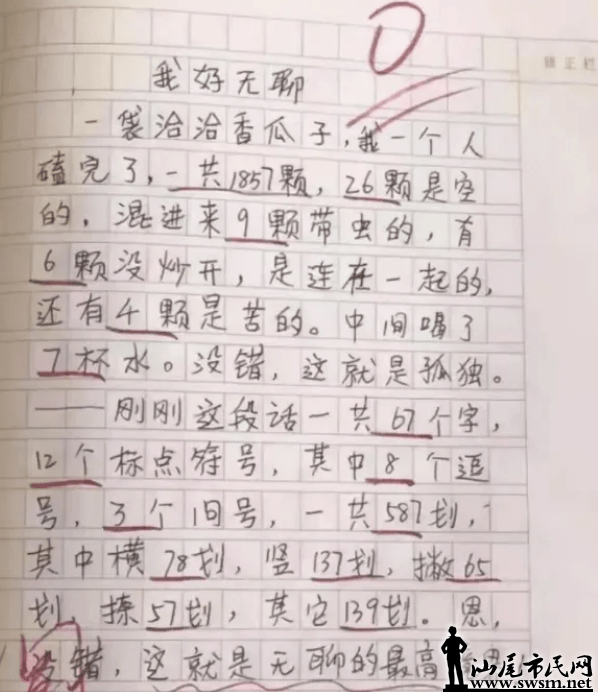 0
修正栏
我好无聊
一袋洽洽香瓜子,我一个人
磕完了,一共1857颗,26颗是空
的,混进来9颗带虫的,有
6颗没炒开,是连在一起的,
还有4颗是苦的。中间喝了
7杯水。没错,这就是孤独。
——刚刚这段话一共67个字,
12个标点符号,其中8个逗
号,3个旧号,一共587划,
其中横78划,竖137划,撇65
划,捺57划,其它139划。恩,
没错,这就是无聊的最高
汕尾市民网
www.swsm.net